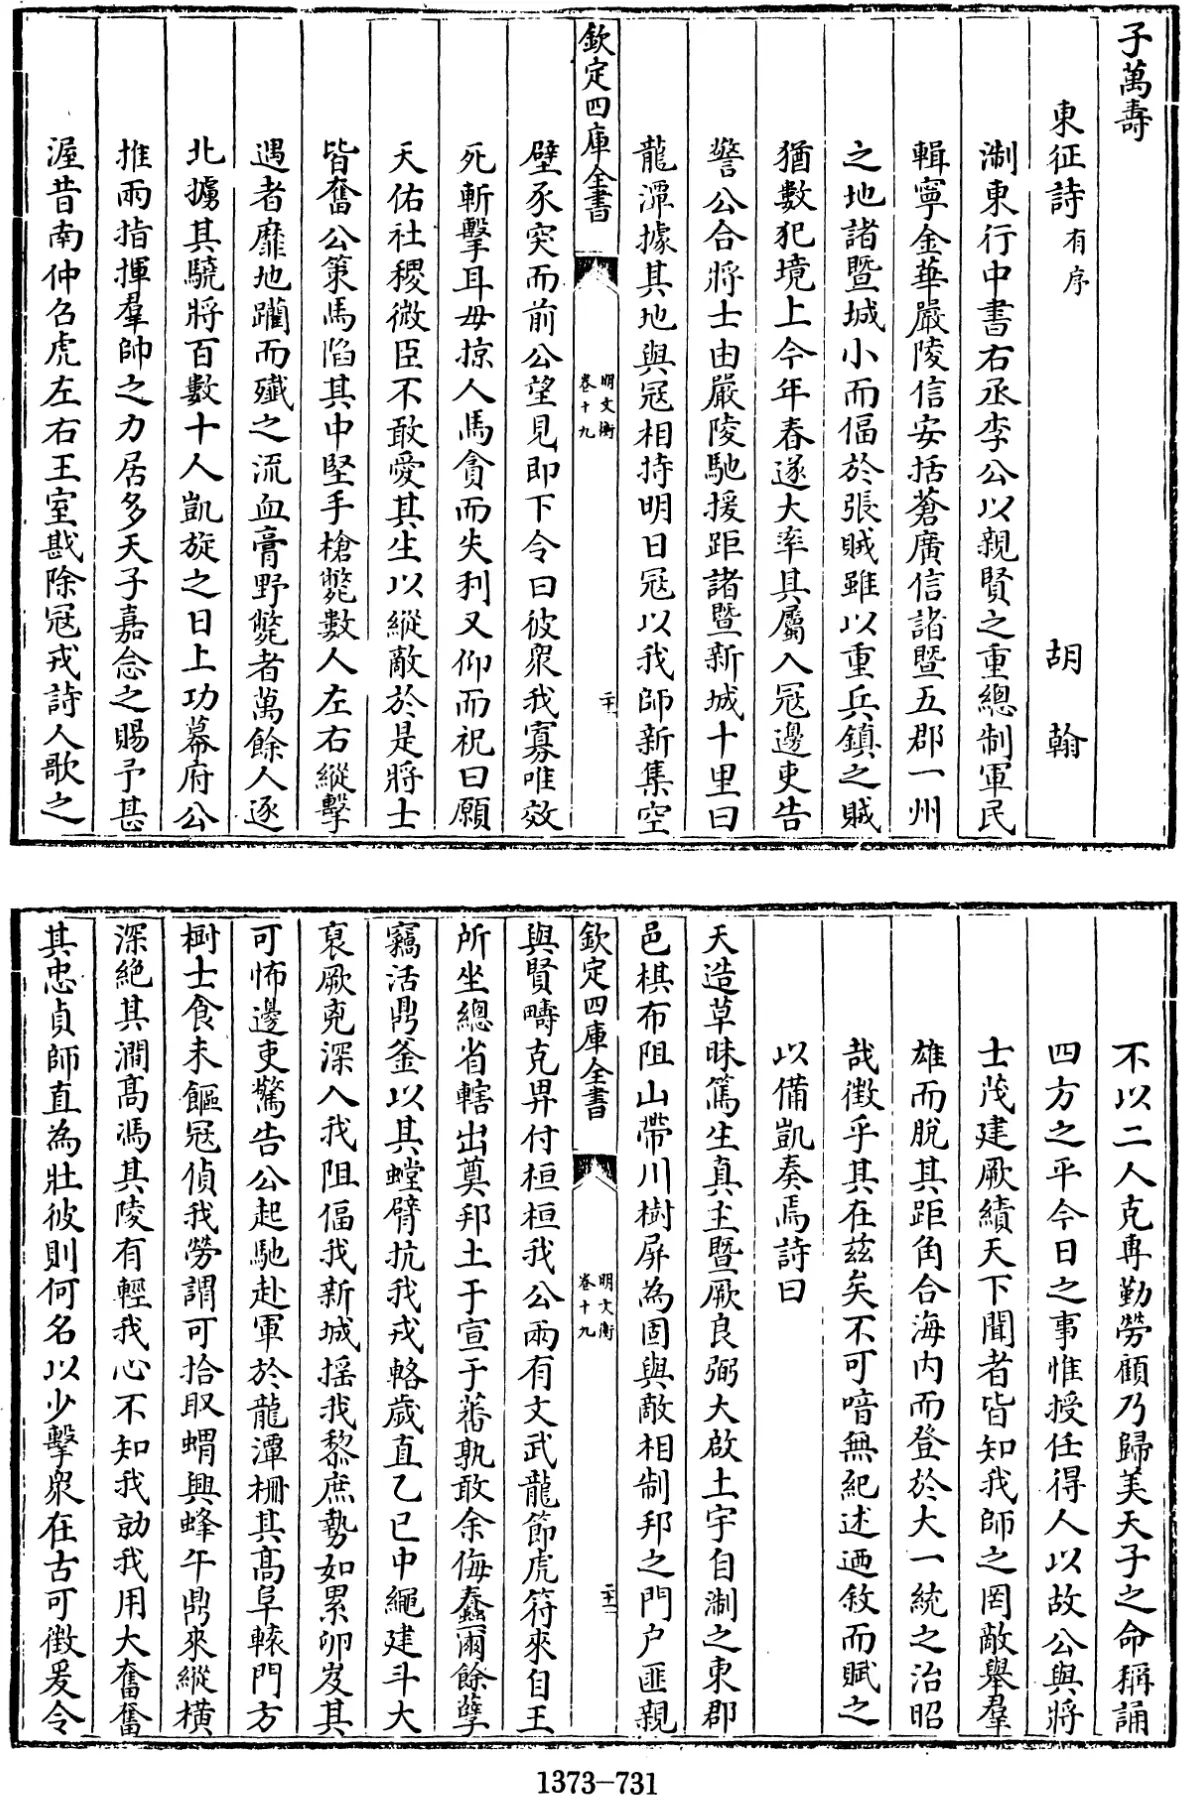 子萬壽
東征詩有序 胡翰
淛東行中書右丞李公以親賢之重總制軍民
輯寧金華嚴陵信安括蒼廣信諸暨五郡一州
之地諸暨城小而偪於張賊雖以重兵鎮之賊
猶數犯境上今年春遂大率其屬入冦邊吏告
警公合將士由嚴陵馳援距諸暨新城十里曰
龍潭據其地與冦相持明日冦以我師新集空
欽定四庫全書
明文衡
卷十九
二十
壁豕突而前公望見即下令曰彼衆我寡唯效
死斬擊耳毋掠人馬貪而失利又仰而祝曰願
天佑社稷微臣不敢愛其生以縱敵於是將士
皆奮公策馬陷其中堅手槍斃數人左右縱擊
遇者靡地躪而殱之流血膏野斃者萬餘人逐
北擄其驍將百數十人凱旋之日上功幕府公
推兩指揮羣帥之力居多天子嘉念之賜予甚
渥昔南仲召虎左右王室戡除冦戎詩人歌之
不以二人克専勤勞顧乃歸美天子之命稱誦
四方之平今日之事惟授任得人以故公與將
士茂建厥績天下聞者皆知我師之罔敵舉羣
雄而脫其距角合海内而登於大一統之治昭
哉徴乎其在茲矣不可喑無紀述迺敘而賦之
以備凱奏焉詩曰
天造草昧篤生真主暨厥良弼大啟土宇自淛之東郡
邑棋布阻山帶川樹屏為固與敵相制邦之門户匪親
欽定四庫全書
明文衡
卷十九
二十一
與賢疇克畀付桓桓我公兩有文武龍節虎符來自王
所坐總省轄出奠邦土于宣于蕃孰敢余侮蠢爾餘孽
竊活鼎釜以其螳臂抗我戎輅歲直乙巳中繩建斗大
裒厥兇深入我阻偪我新城摇我黎庶勢如累卵岌其
可怖邊吏驚告公起馳赴軍於龍潭栅其髙阜轅門方
樹士食未饇冦偵我勞謂可拾取蝟興蜂午鼎來縱横
深絶其澗髙馮其陵有輕我心不知我勍我用大奮奮
其忠貞師直為壯彼則何名以少擊衆在古可徴爰令
1373-731